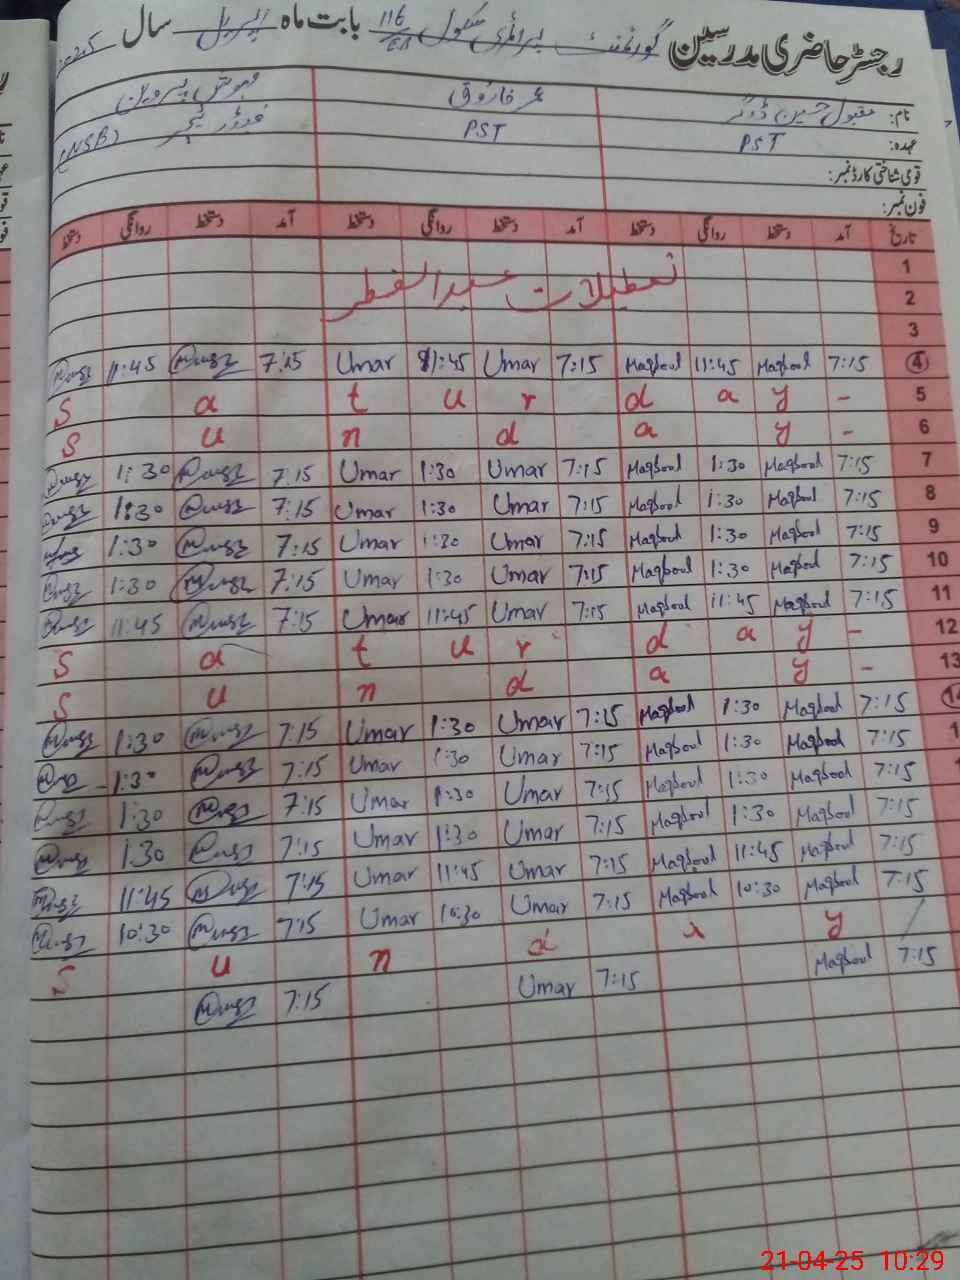 رجسٹر حاضری مدرسین گورنمنٹ پرائمری سکول 116/EB بابت ماہ اپریل سال 2025
نام: مقبول حسین ڈوگر عمر فاروق مہوش پروین
عہدہ: PST PST فوڈر ٹیچر (NSB)
قومی شناختی کارڈ نمبر:
فون نمبر:
تاریخ آمد دستخط روانگی دستخط آمد دستخط روانگی دستخط آمد دستخط روانگی دستخط
1
تعطیلات عیدالفطر
2
3
11:45 7:15 Umar 11:45 Umar 7:15 Maqbool 11:45 Maqbool 7:15 4
S a t u r d a y - 5
S u n d a y - 6
1:30 7:15 Umar 1:30 Umar 7:15 Maqbool 1:30 Maqbool 7:15 7
1:30 7:15 Umar 1:30 Umar 7:15 Maqbool 1:30 Maqbool 7:15 8
1:30 7:15 Umar 1:30 Umar 7:15 Maqbool 1:30 Maqbool 7:15 9
1:30 7:15 Umar 1:30 Umar 7:15 Maqbool 1:30 Maqbool 7:15 10
11:45 7:15 Umar 11:45 Umar 7:15 Maqbool 11:45 Maqbool 7:15 11
S a t u r d a y - 12
S u n d a y - 13
1:30 7:15 Umar 1:30 Umar 7:15 Maqbool 1:30 Maqbool 7:15 14
1:30 7:15 Umar 1:30 Umar 7:15 Maqbool 1:30 Maqbool 7:15
1:30 7:15 Umar 1:30 Umar 7:15 Maqbool 1:30 Maqbool 7:15
1:30 7:15 Umar 1:30 Umar 7:15 Maqbool 1:30 Maqbool 7:15
11:45 7:15 Umar 11:45 Umar 7:15 Maqbool 11:45 Maqbool 7:15
10:30 7:15 Umar 10:30 Umar 7:15 Maqbool 10:30 Maqbool 7:15
S u n d a y
7:15 Umar 7:15 Maqbool 7:15
21-04-25 10:29